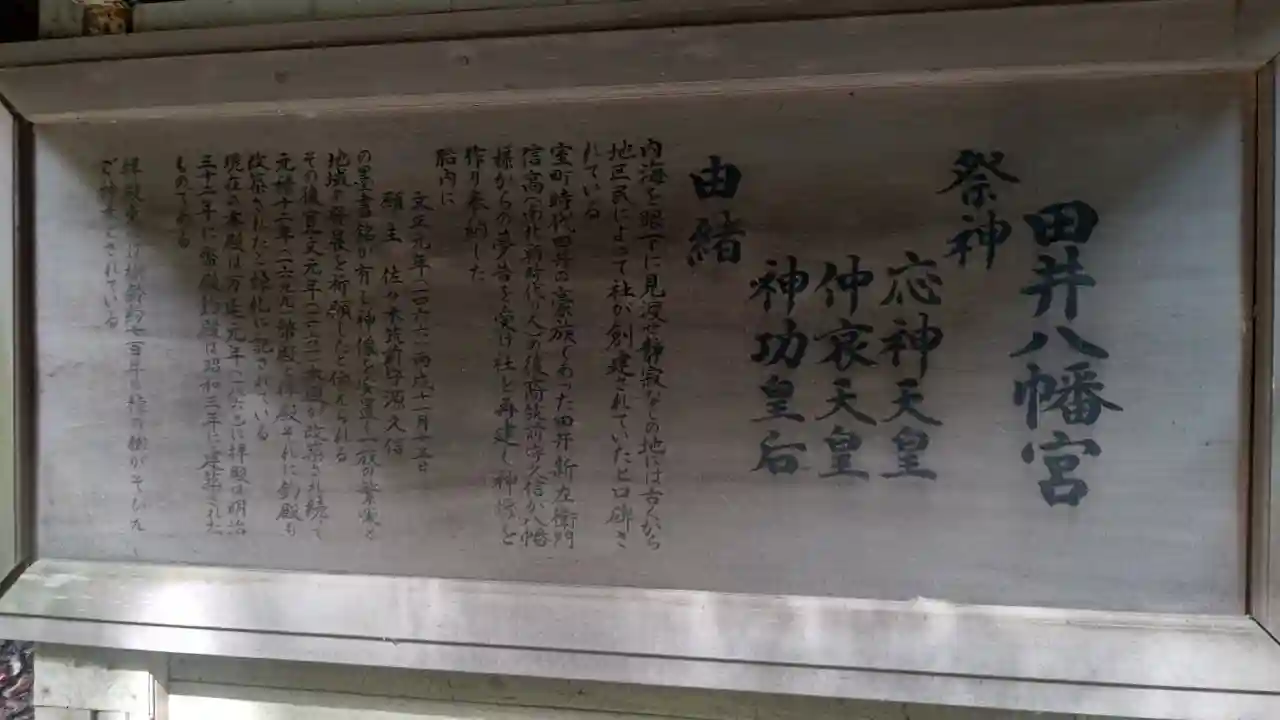 田井八幡宮
祭神
応神天皇
仲哀天皇
神功皇后
由緒
内海を眼下に見渡せ静寂なこの地には古くから
地区民によって社が創建されていたと口碑さ
れている
室町時代田井の豪族であった田井新左衛門
信高(南北朝時代の人)の後裔筑前守久信が八幡
様からの夢告を受け社を再建し神像を
作り奉納した
胎内に
文正元年(一四六六)丙戌十一月十五日
願主 佐々木筑前守源久信
の墨書銘が有る神像を安置し一族の繁栄と
地域の発展を祈願したと伝えられる
その後寛文元年(一六六一)本殿が改築され続いて
元禄十二年(一六九九)幣殿と拝殿それに釣殿も
改築されたと棟札に記されている
現在の本殿は万延元年(一八六〇)に拝殿は明治
三十二年に幣殿釣殿は昭和三年に建築された
ものである
ご神木とされている